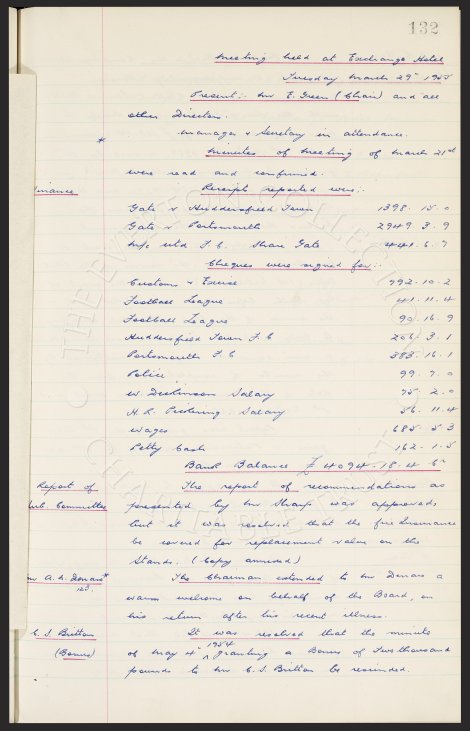 132
Meeting held at Exchange Hotel
Tuesday March 29th 1955
Present:- Mr E. Green (Chair) and all
other Directors.
Manager & Secretary in attendance.
*
Minutes of Meeting of March 21st
were read and confirmed.
Finance
Receipts reported were:-
Gate v Huddersfield Town 1398. 15. 0
Gate v Portsmouth 2949. 3. 9
M/c Utd F.C. Share Gate 441. 6. 7
Cheques were signed for:-
Customs & Excise 992. 10. 2
Football League 41. 11. 4
Football League 90. 16. 9
Huddersfield Town F.C 206. 3. 1
Portsmouth F.C 383. 16. 1
Police 99. 7. 0
W. Dickinson Salary 75. 2. 0
H. R. Pickering Salary 56. 11. 4
Wages 685. 5. 3
Petty Cash 162. 1. 5
Bank Balance £4094. 18. 4
Report of
Sub Committee
The report of recommendations as
presented by Mr Sharp was approved,
but it was resolved that the fire Insurance
be covered for replacement value on the
Stands. (Copy annexed)
Mr A. L. Denaro *
123
The Chairman extended to Mr Denaro a
warm welcome on behalf of the Board, on
his return after his recent illness.
C. S. Britton
(Bonus)
It was resolved that the minute
of May 4th 1954 granting a Bonus of Two thousand
pounds to Mr C. S. Britton be rescinded.
THE EVERTON COLLECTION
CHARITABLE TRUST